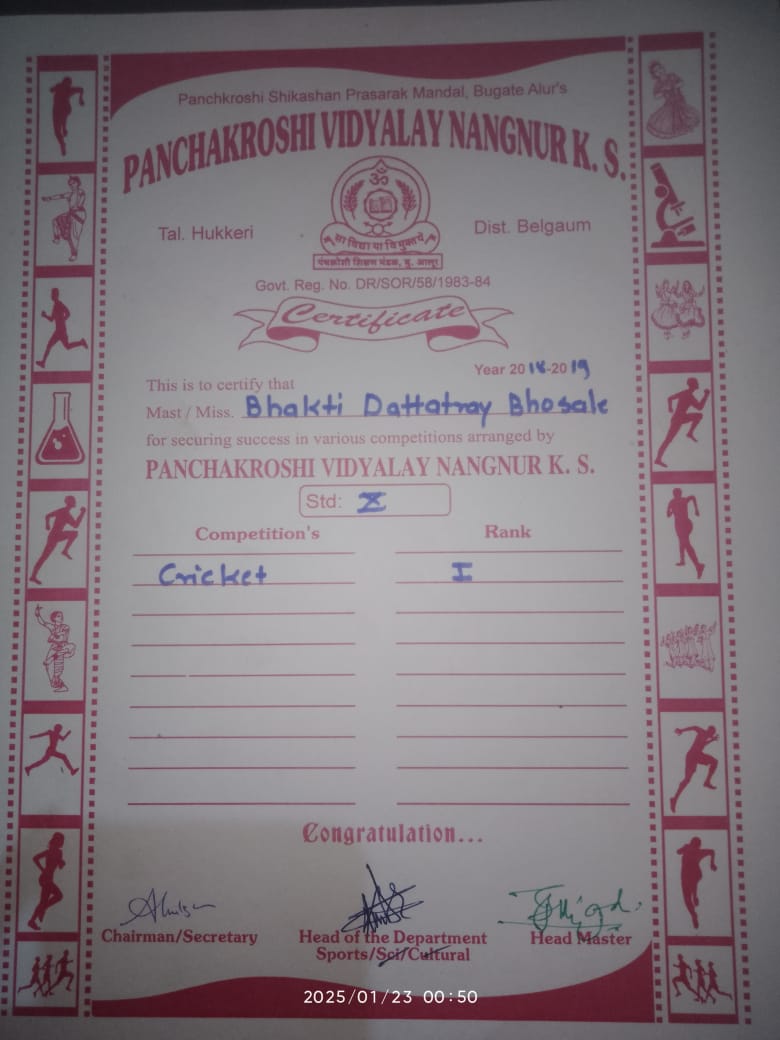 Panchkroshi Shikashan Prasarak Mandal, Bugate Alur's
PANCHAKROSHI VIDYALAY NANGNUR K. S.
ॐ
Tal. Hukkeri
Dist. Belgaum
सा विद्या या विमुक्तये
पंचक्रोशी शिक्षण मंडळ, बु. आलूर
Govt. Reg. No. DR/SOR/58/1983-84
Certificate
Year 2018-2019
This is to certify that
Mast / Miss. Bhakti Dattatray Bhosale
for securing success in various competitions arranged by
PANCHAKROSHI VIDYALAY NANGNUR K. S.
Std: X
Competition's Rank
Cricket I
Congratulation...
Chairman/Secretary
Head of the Department
Sports/Sci/Cultural
Head Master
2025/01/23 00:50